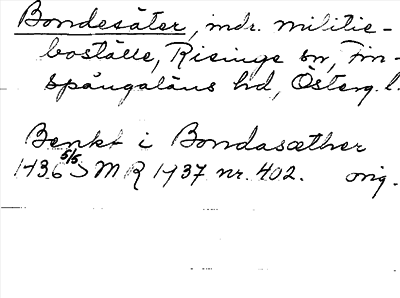 Bondesäter, indr. militie-
boställe, Risinge sn, Fin-
spångaläns hd, Österg. l.
Benkt i Bondasæther
1436 5/5 SMR 1437 nr. 402. orig.